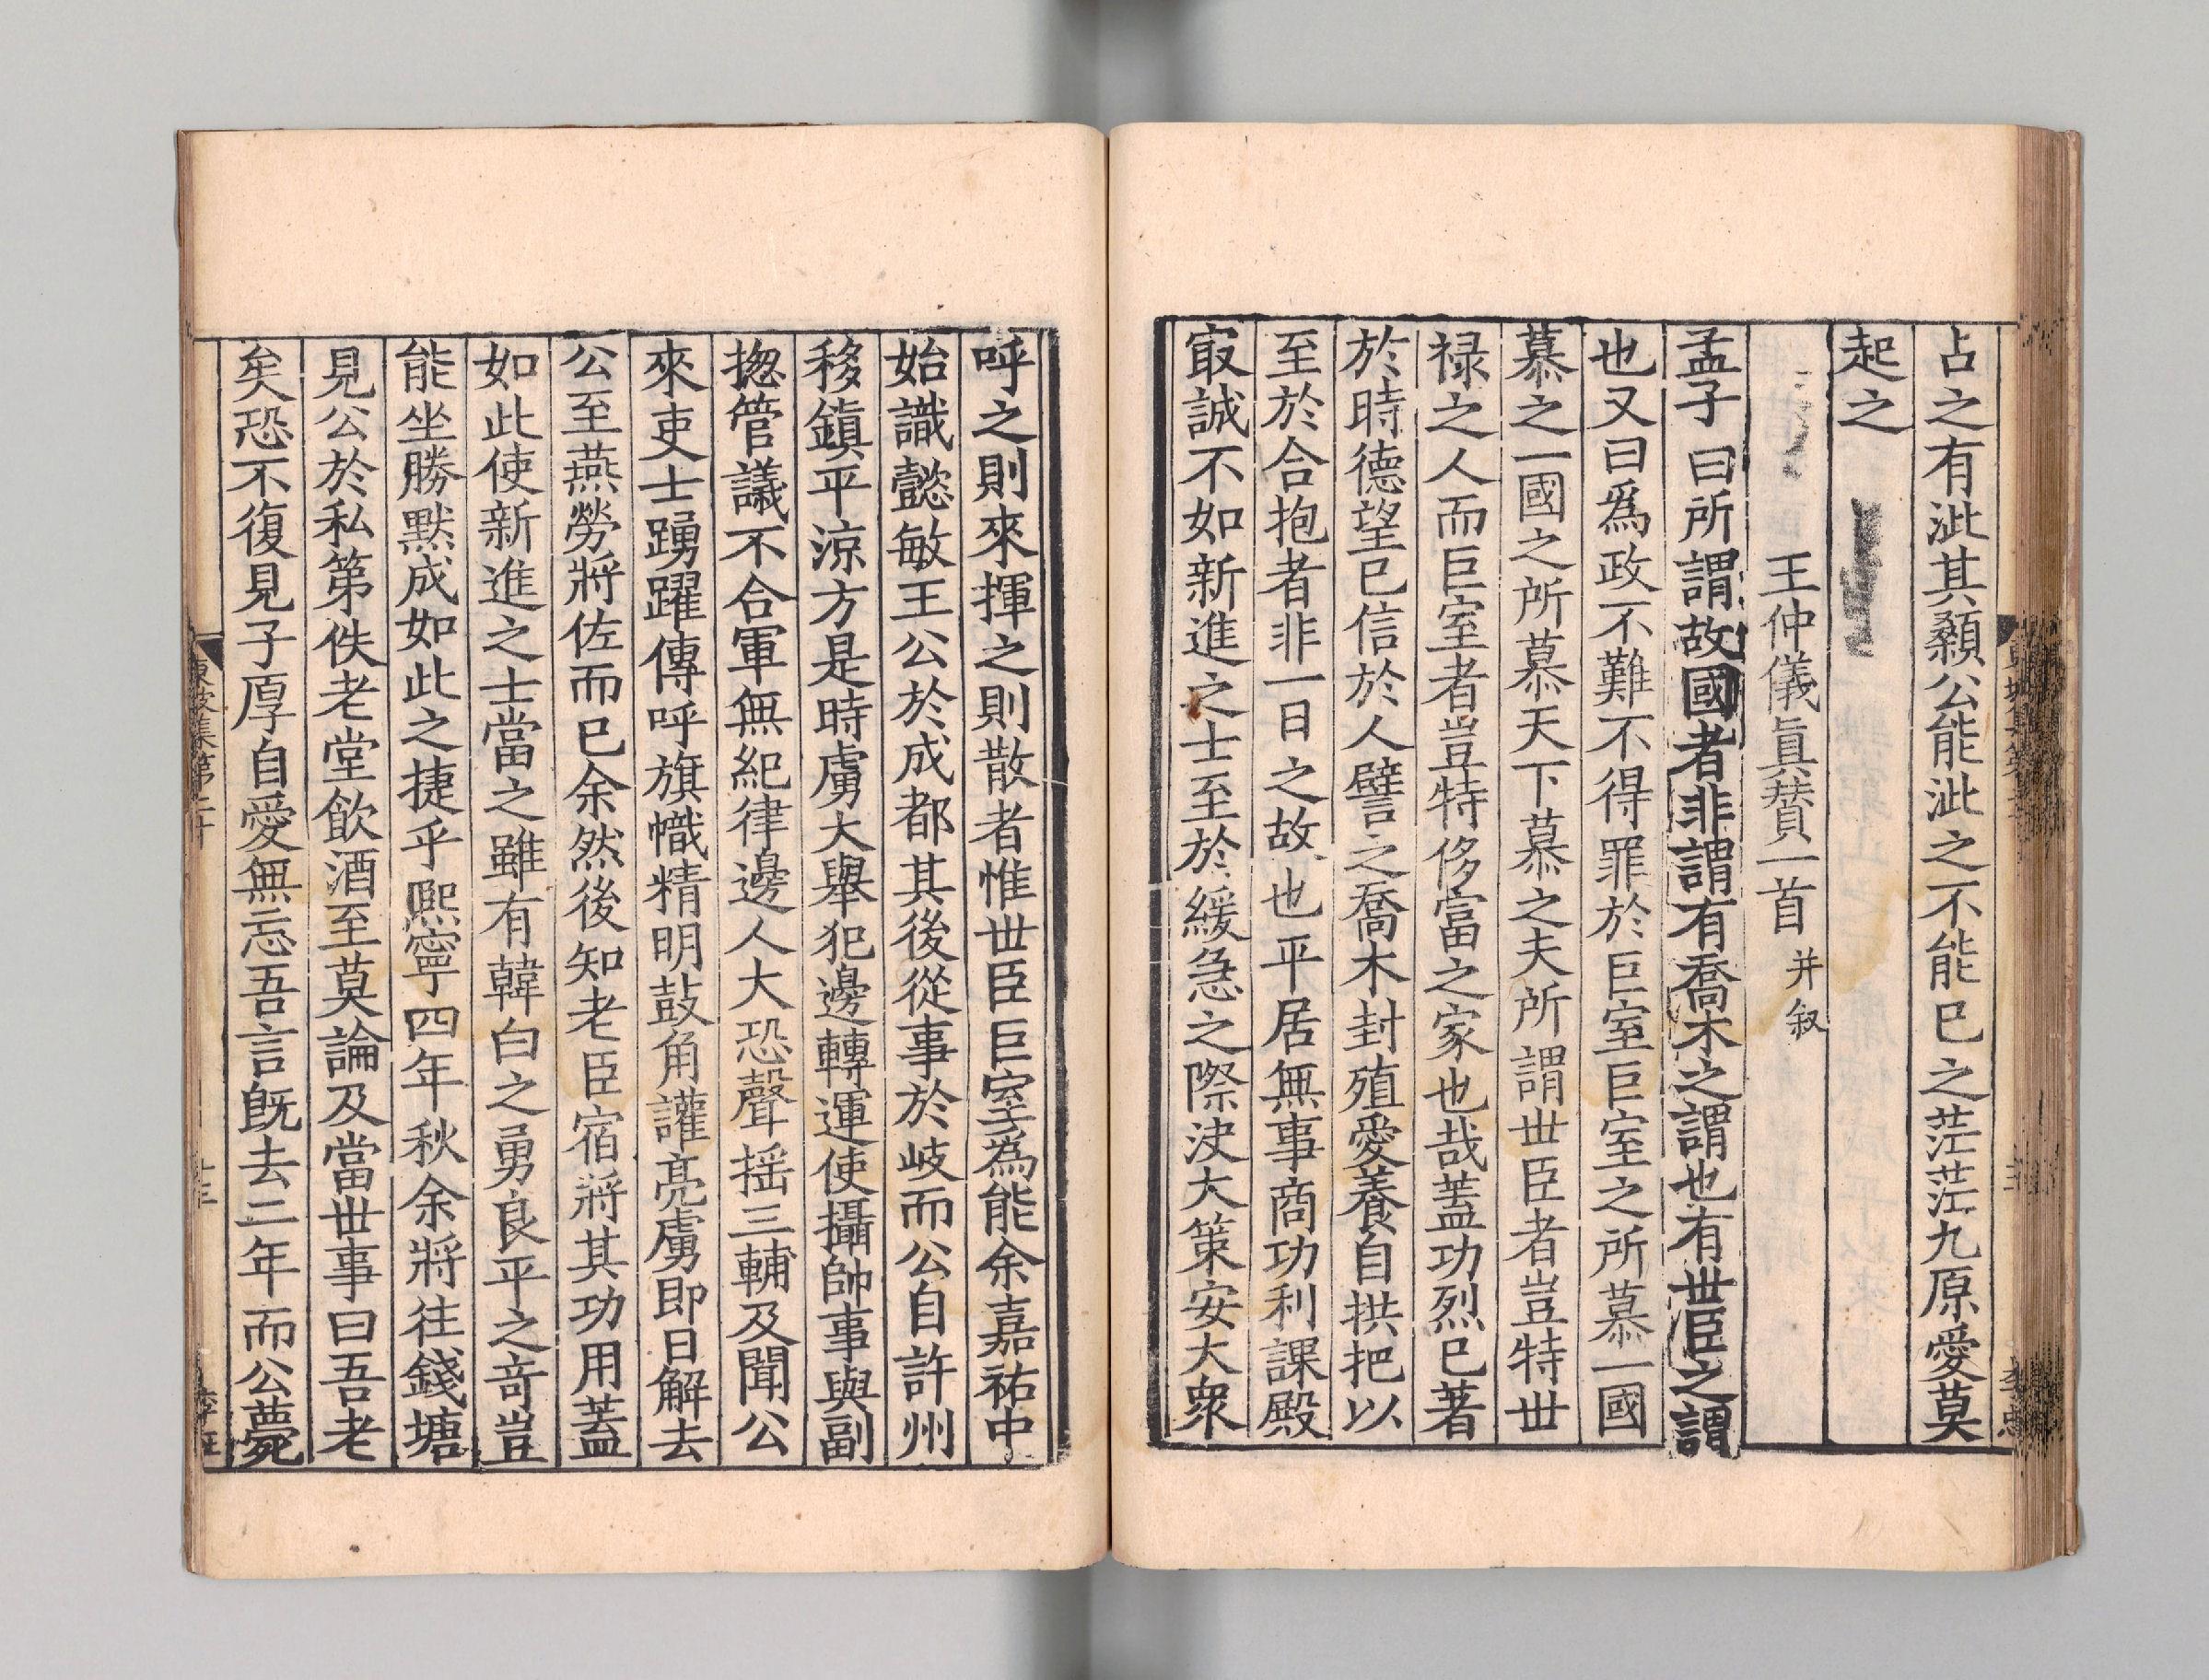 占之有泚其顙公能泚之不能已之茫茫九原愛莫
起之
王仲儀眞贊一首并叙
孟子曰所謂故國者非謂有喬木之謂也有世臣之謂
也又曰爲政不難不得罪於巨室巨室之所慕一國
慕之一國之所慕天下慕之夫所謂世臣者豈特世
禄之人而巨室者豈特侈富之家也哉蓋功烈已著
於時德望已信於人譬之喬木封殖愛養自拱把以
至於合抱者非一日之故也平居無事商功利課殿
㝡誠不如新進之士至於緩急之際决大策安大衆
呼之則來揮之則散者惟世臣巨室為能余嘉祐中
始識懿敏王公於成都其後從事於岐而公自許州
移鎮平涼方是時虜大舉犯邊轉運使攝帥事與副
揔管議不合軍無紀律邊人大恐聲摇三輔及聞公
來吏士踴躍傳呼旗幟精明鼓角讙亮虜即日解去
公至燕勞將佐而已余然後知老臣宿將其功用蓋
如此使新進之士當之雖有韓白之勇良平之奇豈
能坐勝默成如此之捷乎熈寧四年秋余將往錢塘
見公於私第佚老堂飲酒至莫論及當世事曰吾老
矣恐不復見子厚自愛無忘吾言旣去二年而公薨
東坡集第二十